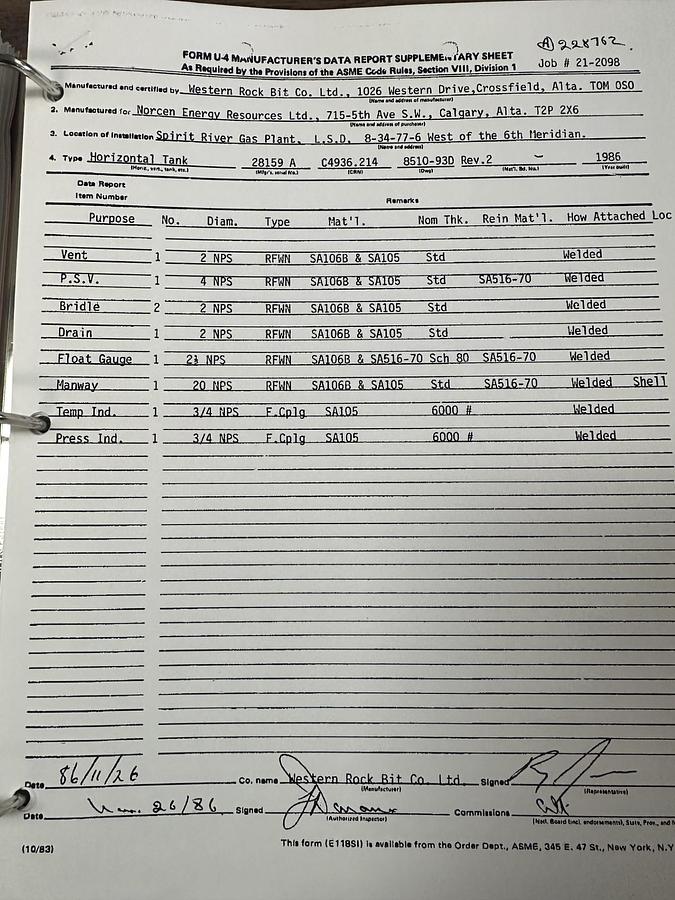 Ⓐ 228762.
FORM U-4 MANUFACTURER'S DATA REPORT SUPPLEMENTARY SHEET
As Required by the Provisions of the ASME Code Rules, Section VIII, Division 1
Job # 21-2098
1. Manufactured and certified by Western Rock Bit Co. Ltd., 1026 Western Drive,Crossfield, Alta. TOM OSO
(Name and address of manufacturer)
2. Manufactured for Norcen Energy Resources Ltd., 715-5th Ave S.W., Calgary, Alta. T2P 2X6
(Name and address of purchaser)
3. Location of Installation Spirit River Gas Plant, L.S.D. 8-34-77-6 West of the 6th Meridian.
(Name and address)
4. Type Horizontal Tank 28159 A C4936.214 8510-93D Rev.2 - 1986
(Horiz., vert., tank, etc.) (Mfgr's. serial No.) (CRN) (Dwg) (Nat'l. Bd. No.) (Year built)
Data Report
Item Number
Remarks
Purpose No. Diam. Type Mat'l. Nom Thk. Rein Mat'l. How Attached Loc
Vent 1 2 NPS RFWN SA106B & SA105 Std Welded
P.S.V. 1 4 NPS RFWN SA106B & SA105 Std SA516-70 Welded
Bridle 2 2 NPS RFWN SA106B & SA105 Std Welded
Drain 1 2 NPS RFWN SA106B & SA105 Std Welded
Float Gauge 1 2½ NPS RFWN SA106B & SA516-70 Sch 80 SA516-70 Welded
Manway 1 20 NPS RFWN SA106B & SA105 Std SA516-70 Welded Shell
Temp Ind. 1 3/4 NPS F.Cplg SA105 6000 # Welded
Press Ind. 1 3/4 NPS F.Cplg SA105 6000 # Welded
Date 86/11/26 Co. name Western Rock Bit Co. Ltd. Signed
(Manufacturer) (Representative)
Date 26/86 Signed Commissions
(Authorized Inspector) (Natl. Board (incl. endorsements), State, Prov., and N
(10/83)
This form (E118SI) is available from the Order Dept., ASME, 345 E. 47 St., New York, N.Y